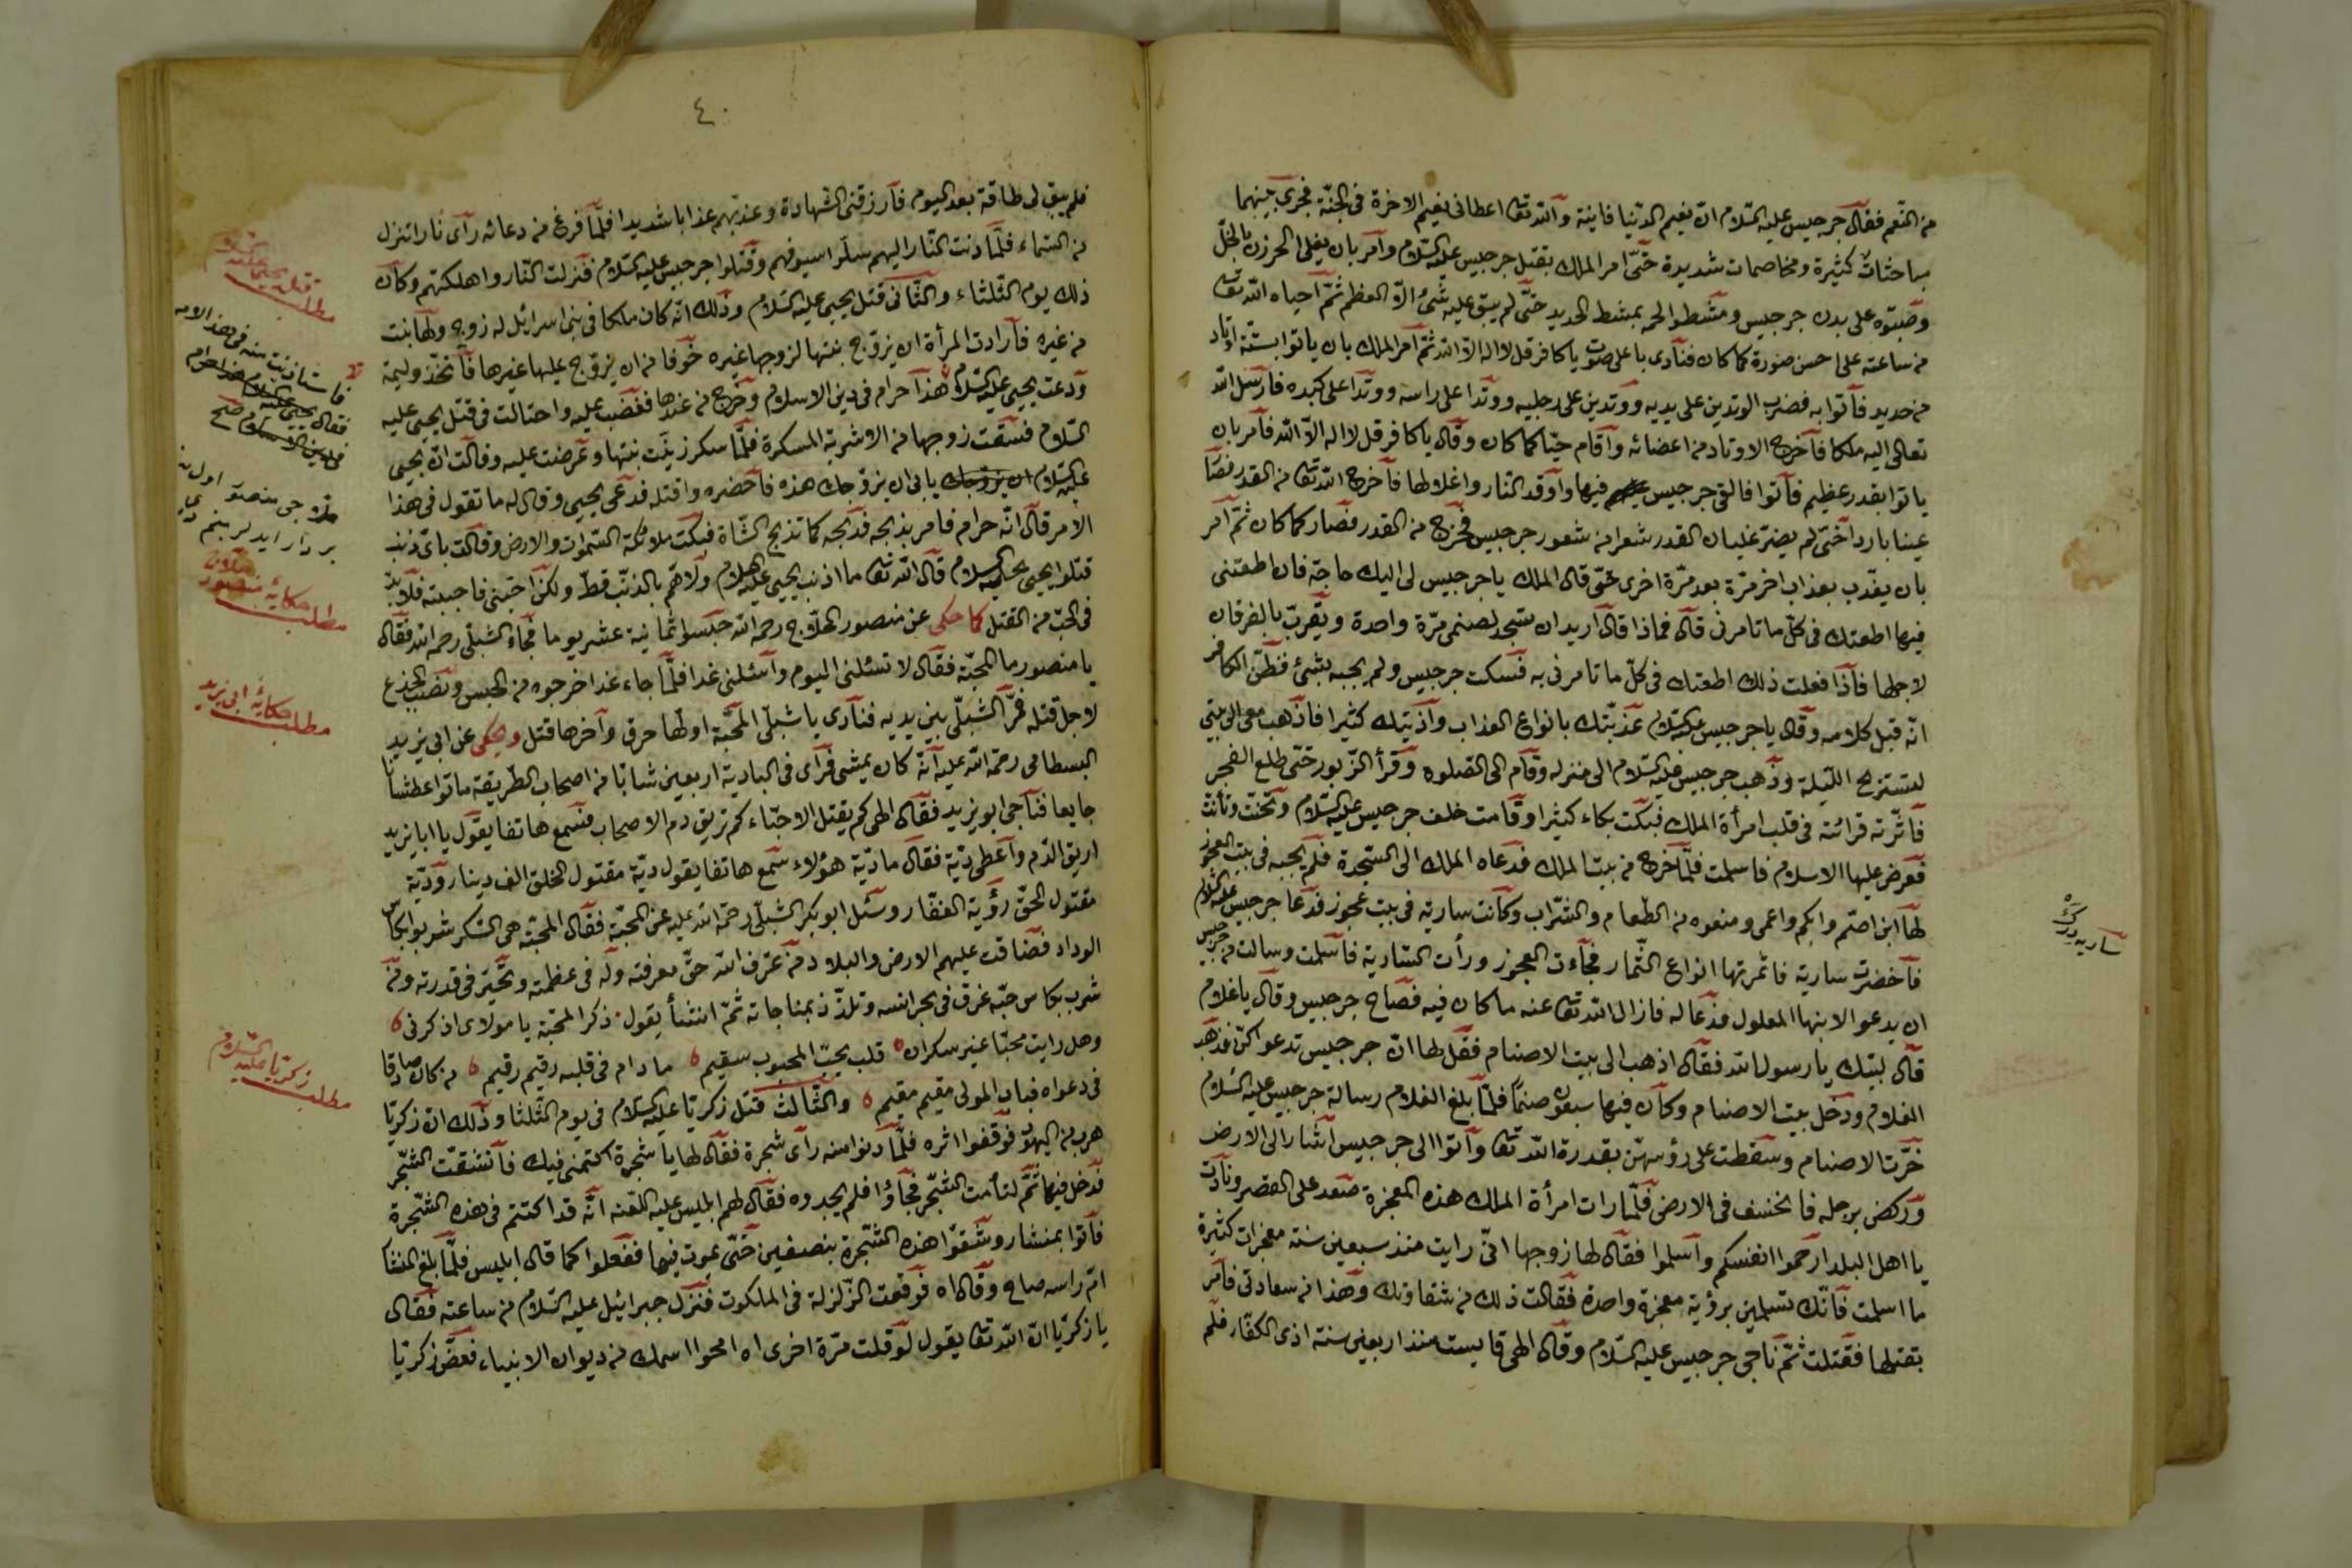 من النعم فقال جرجيس عليه السلام ان نعيم الدنيا فانية والله تعا اعطانى نعيم الاخرة فى الجنة فجرى بينهما
مباحثات كثيرة ومخاصمات شديدة حتى امر الملك بقتل جرجيس عليه السلام وامر بان يغلى الخردل بالخل
وصبوه على بدن جرجيس ومشطوا لحمه بمشط الحديد حتى لم يبق عليه شئ الا العظم ثم احياه الله تعا
من ساعته على احسن صورة كما كان فنادى باعلى صوت يا كافر قل لا اله الا الله ثم امر الملك بان ياتوا بستة اوتاد
من حديد فاتوا به فضرب الوتدين على يديه ووتدين على رجليه ووتدا على راسه ووتدا على كبده فارسل الله
تعالى اليه ملكا فاخرج الاوتاد من اعضائه واقام حيا كما كان وقال يا كافر قل لا اله الا الله فامر بان
ياتوا بقدر عظيم فاتوا فالقى جرجيس فيها واوقد النار واغلاطها فاخرج الله تعا من القدر فصا
عينا باردا حتى لم يضر غليان القدر شعرا من شعور جرجيس فخرج من القدر فصار كما كان ثم امر
بان يعذب بعذاب اخر مرة بعد مرة اخرى حتى قال الملك يا جرجيس لى اليك حاجة فان اطعتنى
فيها اطعتك فى كل ما تامرنى قال فماذا قال اريد ان تسجد لصنمى مرة واحدة وتقرب بالقربان
لاجلها فاذا فعلت ذلك اطعتك فى كل ما تامرنى به فسكت جرجيس ولم يجبه بشئ فظن الكافر
انه قبل كلامه وقال يا جرجيس عليه السلام عذبتك بانواع العذاب واذيتك كثيرا فاذهب معى الى بيتى
لتستريح الليلة وذهب جرجيس عليه السلام الى منزله وقام الى الصلوة وقرأ الزبور حتى طلع الفجر
فاثرته قرائته فى قلب امرأة الملك فبكت بكاء كثيرا وقامت خلف جرجيس عليه السلام وتحنت وتأنت
فعرض عليها الاسلام فاسلمت فلما خرج من بيت الملك فدعاه الملك الى السجدة فلم يجبه فى بيت العجوز
لها ابن اصم وابكم واعمى ومنعوه من الطعام والشراب وكانت سارية فى بيت عجوز فدعا جرجيس عليه السلام
فاخضرت سارية فاثمرتها انواع الثمار فجاءت العجوز ورأت السارية فاسلمت وسالت من جرجيس
ان يدعو لابنها المعلول فدعا له فازال الله تعا عنه ما كان فيه فصاح جرجيس وقال يا غلام
قال لبيك يا رسول الله فقال اذهب الى بيت الاصنام فقل لها ان جرجيس تدعوكن فذهب
الغلام ودخل بيت الاصنام وكان فيها سبعون صنما فلما بلغ الغلام رسالة جرجيس عليه السلام
خرت الاصنام وسقطت على رؤسهن بقدرة الله تعا واتوا الى جرجيس اشار الى الارض
وركض برجله فانخسف فى الارض فلما رات امرأة الملك هذه المعجزة صعد على القصر ونادت
يا اهل البلد ارحموا انفسكم واسلموا فقال لها زوجها انى رايت منذ سبعين سنة معجزات كثيرة
ما اسلمت فانك تسلمين برؤية معجزة واحدة فقالت ذلك من شقاوتك وهذا من سعادتى فامر
بقتلها فقتلت ثم ناجى جرجيس عليه السلام وقال الهى قاسيت منذ اربعين سنة اذى الكفار فلم
ساريه ديرك
٤٠
فلم يبق لى طاقة بعد اليوم فارزقنى الشهادة وعذبهم عذابا شديدا فلما فرغ من دعائه رأى نارا تنزل
من السماء فلما دنت النار اليهم سلوا سيوفهم وقتلوا جرجيس عليه السلام فنزلت النار واهلكتهم وكان
ذلك يوم الثلثاء والثانى قتل يحيى عليه السلام وذلك انه كان ملكا فى بنى اسرائل له زوج ولها بنت
من غيره فارادت المرأة ان يزوج بنتها لزوجها غيره خوفا من ان يزوج عليها غيرها فاتخذ وليمة
ودعت يحيى عليه السلام هذا حرام فى دين الاسلام وخرج من عندها فغضب عليه واحتالت فى قتل يحيى عليه
السلام فسقت زوجها من الاشربة المسكرة فلما سكر زينت بنتها وعرضت عليه وقالت ان يحيى
عليه السلام ان يزوجك يابى ان يزوجك هذه فاحضره واقتله فدعى يحيى وقال له ما تقول فى هذا
الامر قال انه حرام فامر بذبحه فذبحه كما تذبح الشاة فبكت ملائكة السموات والارض وقالت باى ذنب
قتلوا يحيى عليه السلام قال الله تعا ما اذنب يحيى عليه السلام ولا هم بالذنب قط ولكن احبنى فاحببته فلا بد
فى الحب من القتل كما حكى عن منصور الحلاج رحمه الله حبسوا ثمانية عشر يوما فجاء الشبلى رحمه الله فقال
يا منصور ما المحبة فقال لا تسئلنى اليوم واسئلنى غدا فلما جاء غدا خرجوه من الحبس ونصب الجذع
لاجل قتله فمر الشبلى بين يديه فنادى يا شبلى المحبة اولها حرق واخرها قتل وحكى عن ابى يزيد
البسطامى رحمة الله عليه انه كان يمشى فرأى فى البادية اربعين شابا من اصحاب الطريقة ماتوا عطشانا
جايعا فناجى ابو يزيد فقال الهى كم يقتل الاحباء كم تريق دم الاصحاب فسمع هاتفا يقول يا ابا يزيد
اريق الدم واعطى دية فقال ما دية هؤلاء سمع هاتفا يقول دية مقتول الخلق الف دينار ودية
مقتول الحق رؤية الغفار وسئل ابو بكر الشبلى رحمة الله عليه عن المحبة فقال المحبة هى السكر شربوا بكاس
الوداد فضاقت عليهم الارض والبلاد من عرف الله حق معرفته وله فى عظمته وتحير فى قدرته ومن
شرب بكاس حبه غرق فى بحر انسه وتلذذ بمناجاته ثم انشأ يقول ذكر المحبة يا مولاى اذكرنى
وهل رايت محبا غير سكران قلب يحب المحبوب سقيم ما دام فى قلبه رقيم رقيم من كان صادقا
فى دعواه فباب المولى مقيم مقيم والثالث قتل زكريا عليه السلام فى يوم الثلثا وذلك ان زكريا
هرب من اليهود فوقفوا اثره فلما دنوا منه رأى شجرة فقال لها يا شجرة اكتمنى فيك فانشقت الشجر
فدخل فيها ثم لتأمت الشجر فجاؤا فلم يجدوه فقال لهم ابليس عليه اللعنه انه قد اكتتم فى هذه الشجرة
فاتوا بمنشار وشقوا هذه الشجرة بنصفين حتى يموت فيها ففعلوا كما قال ابليس فلما بلغ المنشا
ام راسه صاح وقال اه فوقعت الزلزلة فى الملكوت فنزل جبرائيل عليه السلام من ساعته فقال
يا زكريا ان الله تعا يقول لو قلت مرة اخرى اه امحوا اسمك من ديوان الانبياء فعض زكريا
مطلب قتل يحيى عليه السلام
فاستاذنت منه فى هذ الامر
فقال يحيى عليه السلام هذا حرام
فى دين الاسلام
مطلب حكاية منصور حلاج
مطلب حكاية ابى يزيد
مطلب زكريا عليه السلام